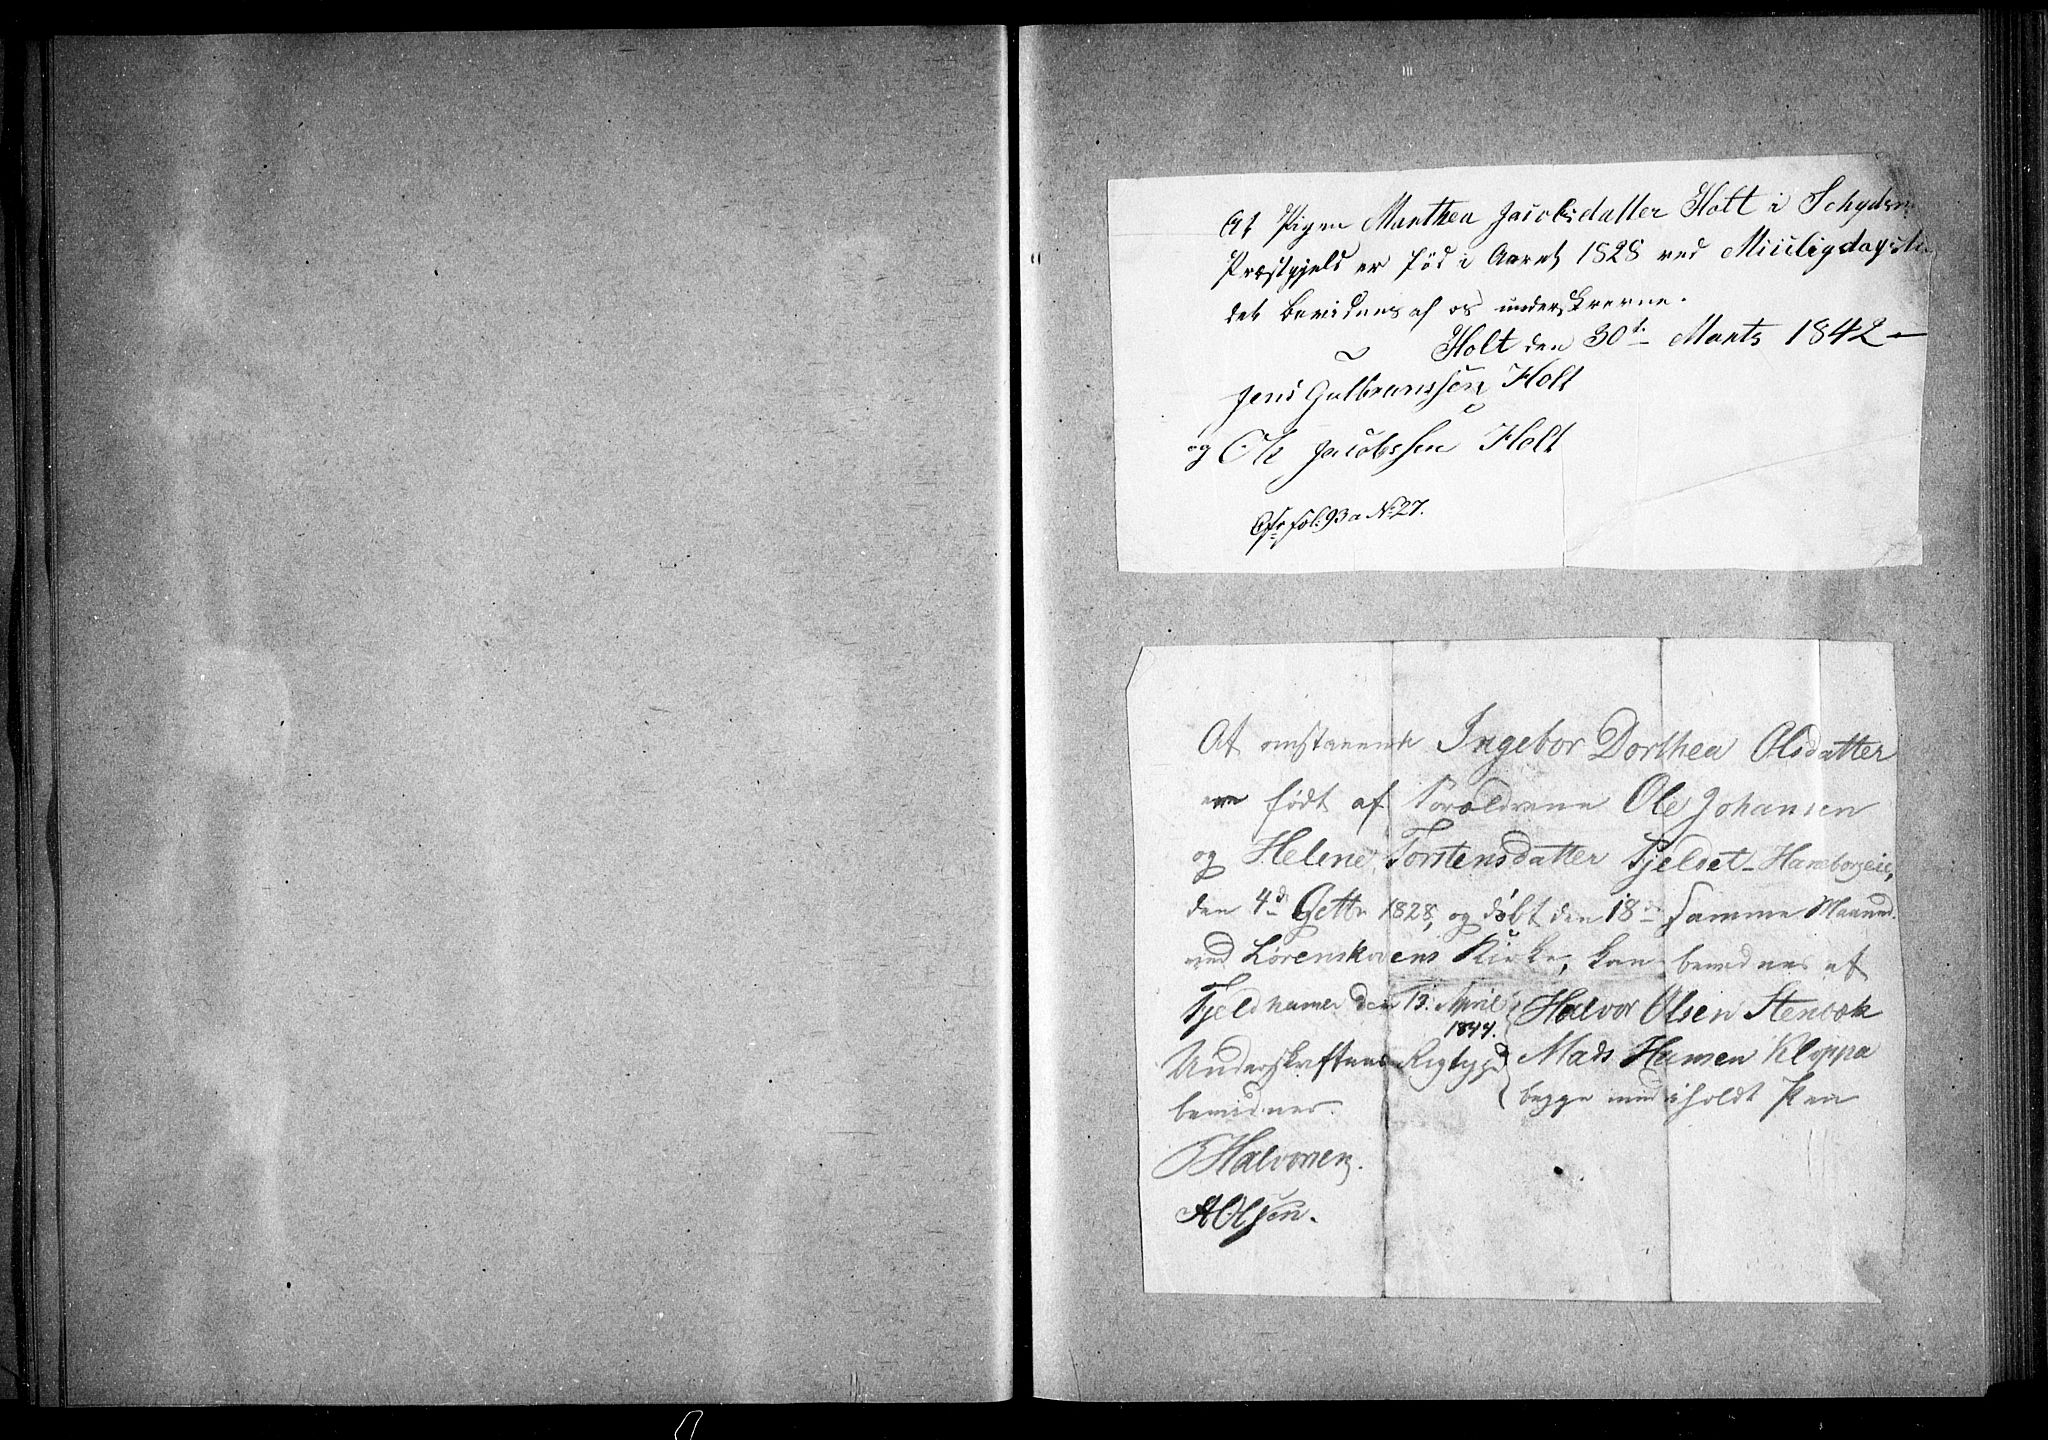 At Pigen Marthea Jacobsdatter Holt i Schydsm
Præstgjeld er född i Aaret 1828 ved
det bevidnes af os underskrevne.
Holt den 30t Marts 1842
Jens Gulbranssen Holt
og Ole Jacobssen Holt
Cfr fol: 93a N: 27.
At omstaaende Ingebor Dorthea Olsdatter
er født af Forældrene Ole Johansen
og Helene Torstensdatter Fjeldet-Haneborgeie,
den 4de 1828, og døbt den 18de samme Maaned
ved Lørenskovens Kirke, kan bevidnes af
Fjeldhamer den 12. April
1844.
Halvor Olsen Stenbæk
Underskriftens Rigtighed
Mads Hansen Kloppa
bevidner.
begge med iholdt Pen
Halvorsen.
A Olsen.